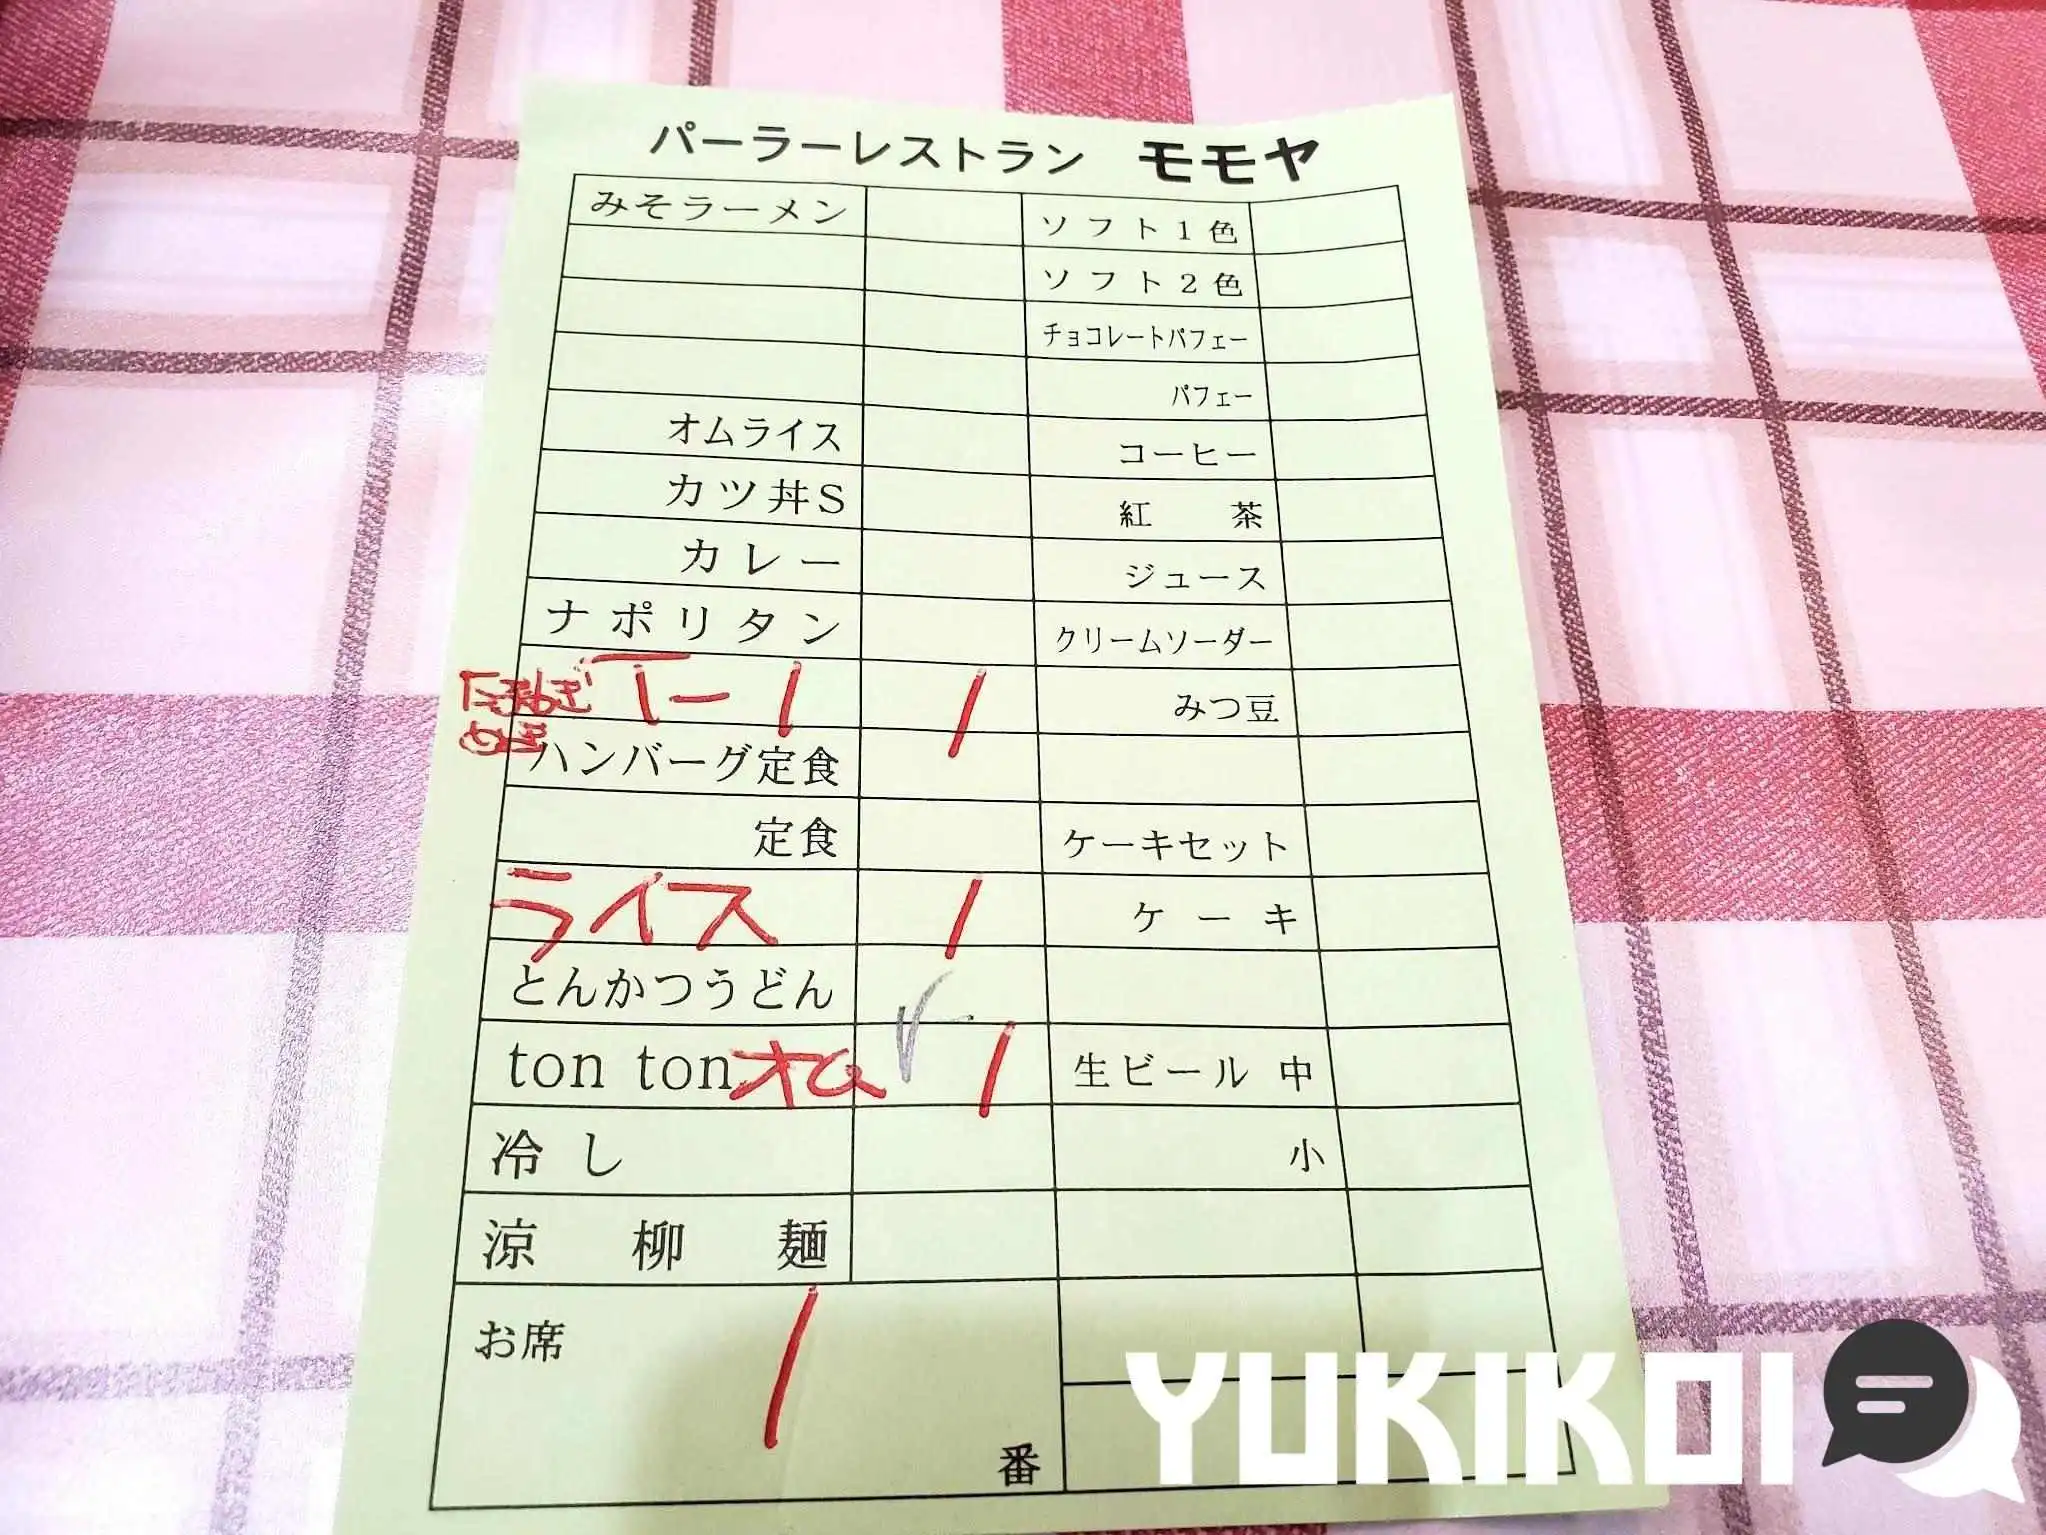 パーラーレストラン モモヤ
みそラーメン
オムライス
カツ丼S
カレー
ナポリタン
T-1 1
ハンバーグ定食
定食
ライス 1
とんかつうどん
ton ton オム 1
冷し
涼柳麺
お席 1 番
ソフト1色
ソフト2色
チョコレートパフェー
パフェー
コーヒー
紅茶
ジュース
クリームソーダー
みつ豆
ケーキセット
ケーキ
生ビール 中
小
YUKIKOI